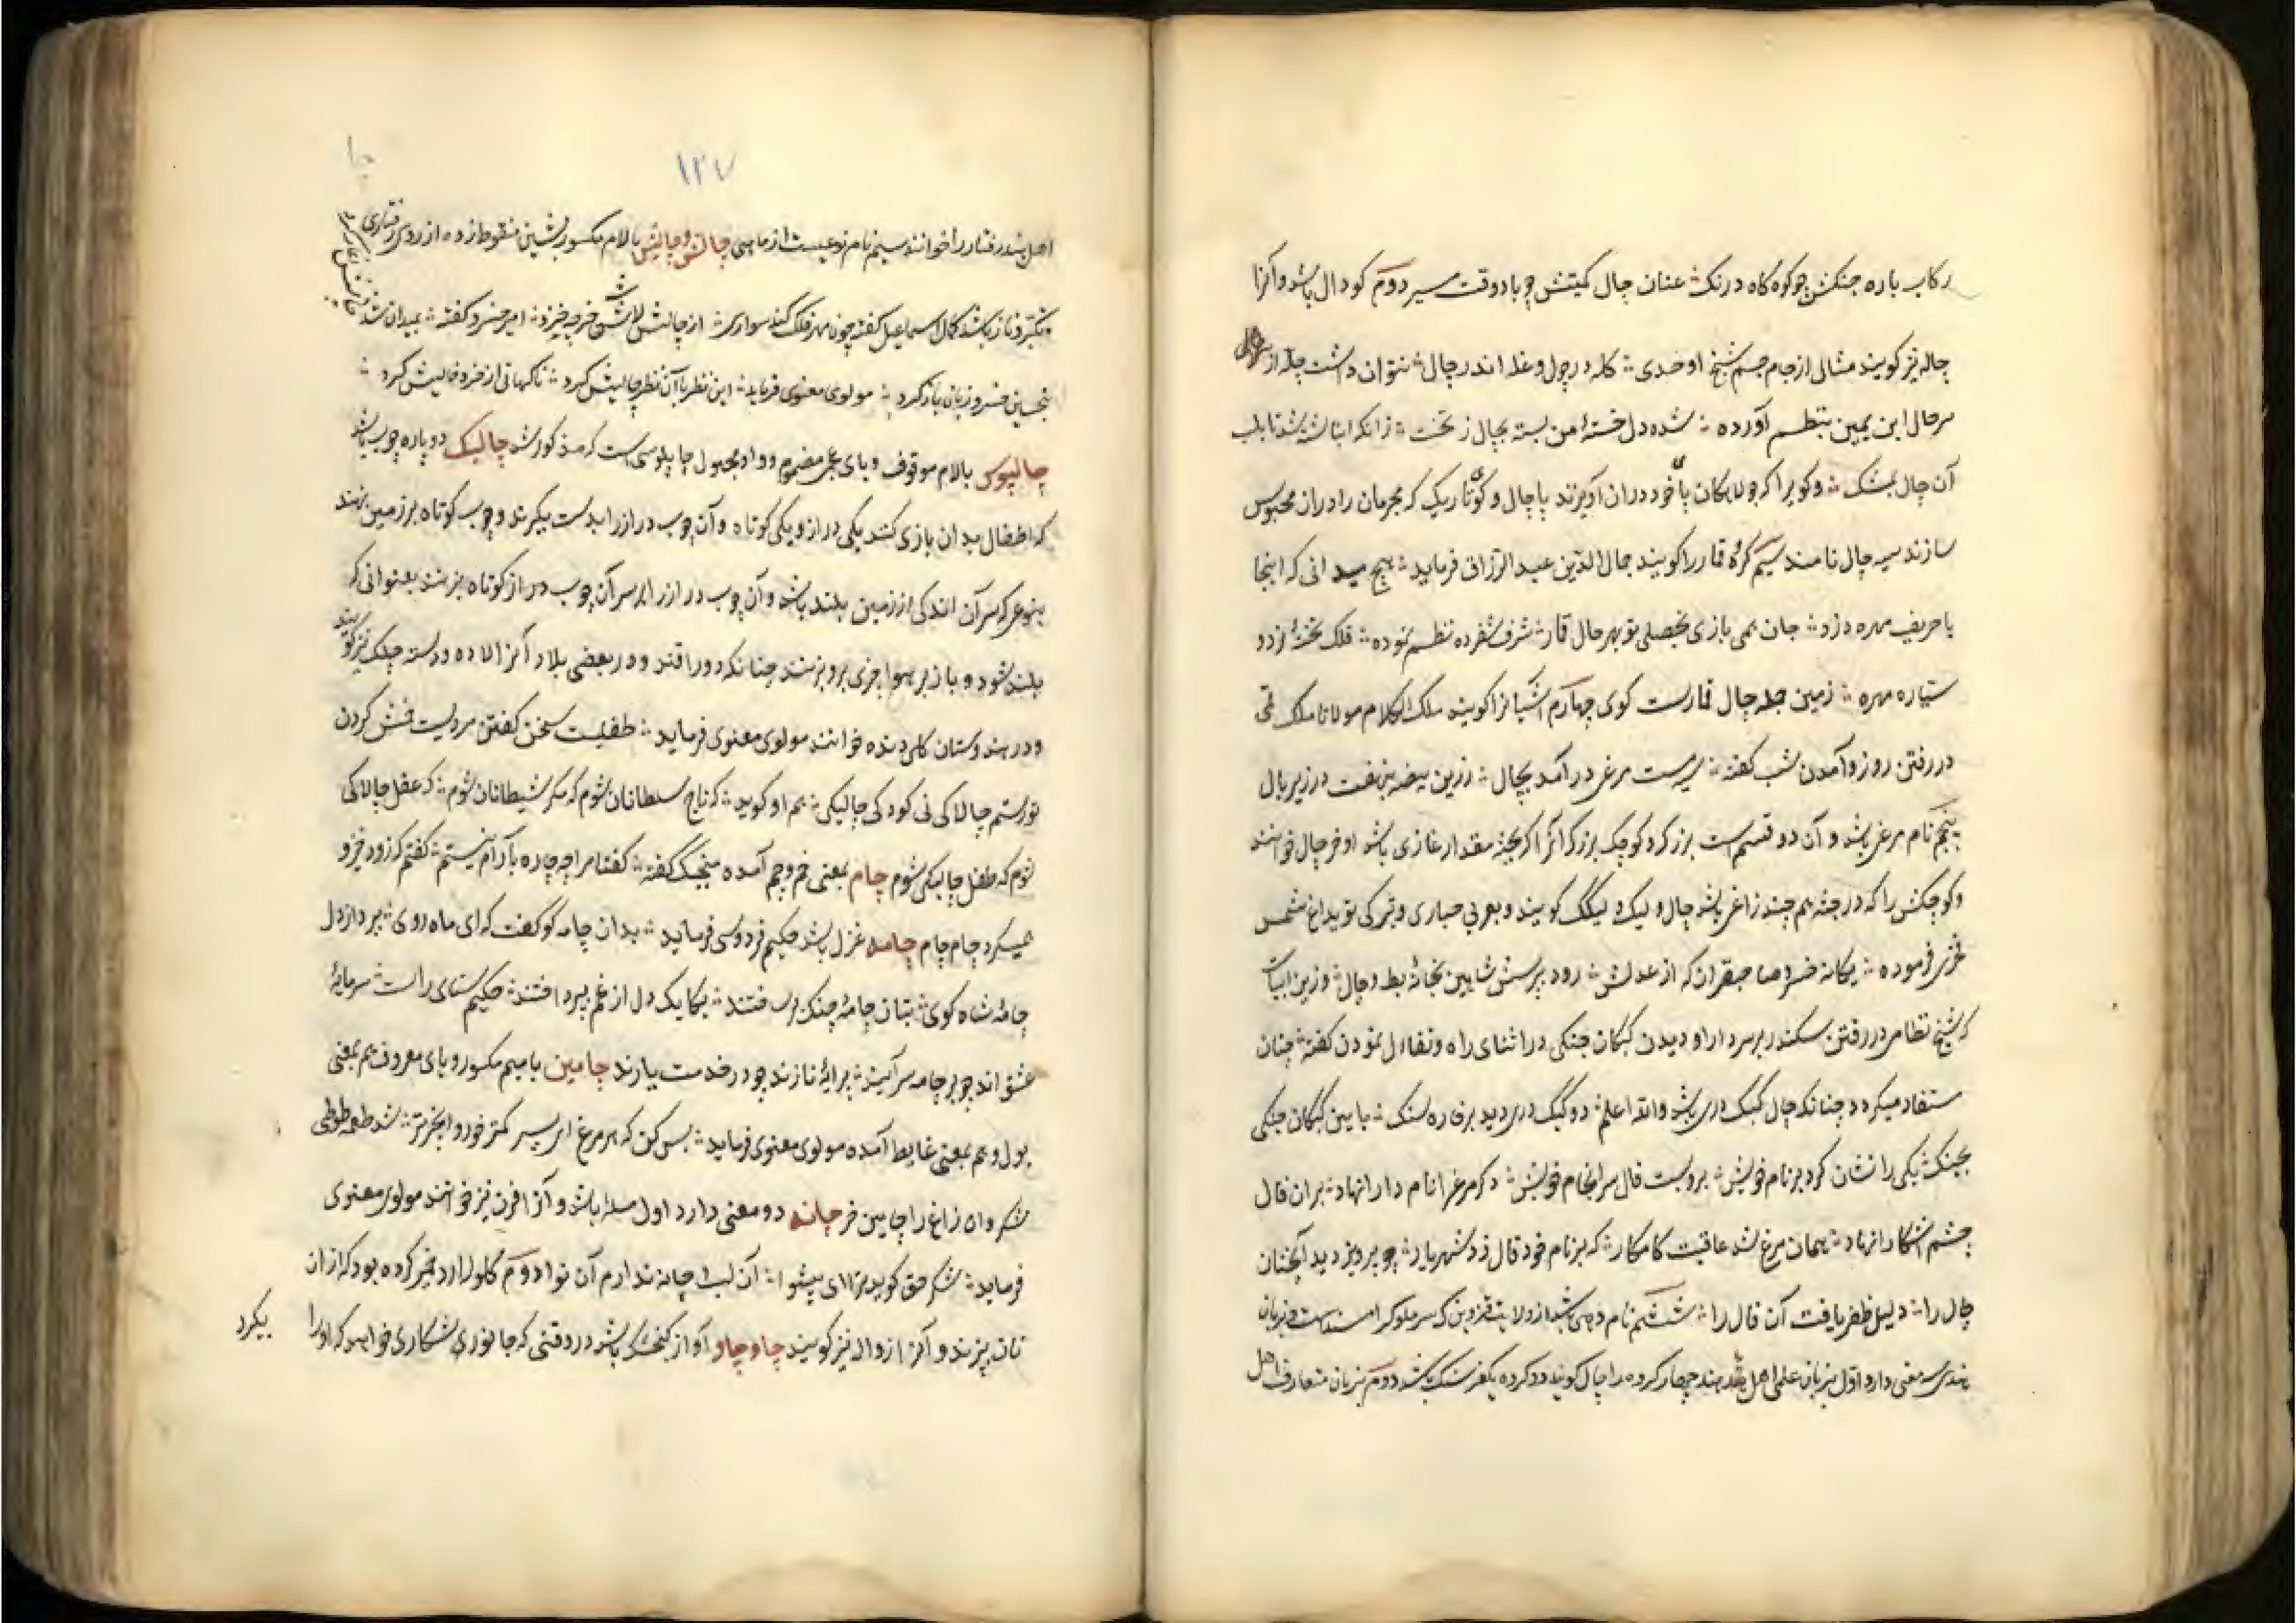 رکاب باره جنکش چو کوه کاه درنک ؞ عنان چال کمیتش چو باد وقت مسیر دوم کودال باشد و آنرا
چاله نیز کویند مثالی از جام جم شیخ اوحدی ؞ کله در چول و غله اندر چال ؞ نتوان داشت جله از
سرحال ابن یمین بنظم آورده ؞ شده دل خسته من بسته بچال زنخت ؞ زانکه انباشته شد تا بلب
آن چال بمشک ؞ و کویرا که جولاهکان پای خود دران آویزند پاچال و کوی تاریک که مجرمان را دران محبوس
سازند سیه چال نامند سیم کرو قمار را کویند جمال الدین عبد الرزاق فرماید ؞ هیچ میدانی که اینجا
با حریف مهره دزد ؞ جان همی بازی بخصلی تو بهر چال قمار ؞ شرف شفرده نظم نموده ؞ فلک تخته نرد و
ستاره مهره ؞ زمین جمله چال قمارست کوی چهارم آشیانرا کویند ملک الکلام مولانا ملک قمی
در رفتن روز و آمدن شب کفته ؞ سیه مست مرغی در آمد بچال ؞ زرین بیضه بنهفت در زیر بال
پنجم نام مرغی باشد و آن دو قسمست بزرک و کوچک بزرک آنرا که بجثه مقدار غازی باشد او خرچال خوانند
و کوچکش را که در جثه هم چند زاغی باشد چال و لیک و لیکک کویند و بعربی حباری و ترکی توبداغ شمس
فخری فرموده ؞ یکانه خسرو صاحبقران که از عدلش ؞ رود بپرسش شاهین بخانه بط و چال ؞ وزین ابیات
که شیخ نظامی در رفتن سکندر بر سر دارا و دیدن کبکان جنکی در اثنای راه و تفاءل نمودن کفته چنان
مستفاد میکردد چنانکه چال کبک دری باشد والله اعلم ؞ دو کبک دری دید بر خاره سنک ؞ بآیین کبکان جنکی
بجنک ؞ یکی را نشان کرد بر نام خویش ؞ برو بست فال سرانجام خویش ؞ دکر مرغ را نام دارا نهاد ؞ بران فال
چشم آشکارا نهاد ؞ همان مرغ شد عاقبت کامکار ؞ که بر نام خود فال زد شهریار ؞ چو پیروز دید آنچنان
چال را ؞ دلیل ظفر یافت آن فال را ؞ ششم نام دهی باشد از ولایت قزوین که و بزبان
هندی سه معنی دارد اول بزبان علمی اهل هند چهار کروه را چال کویند و کروه یکفرسنک باشد دوم بزبان متعارف اهل
۱۲۷
اهل هند رفتار را خوانند سیم نام نوعیست از ماهی چالش و چالیش بالام مکسور بشین منقوط زده از روی رفتاری
و تکبر و ناز باشد کمال اسماعیل کفته چون مهر فلک کند سواری ؞ از چالش لاشه خر چه خیزد ؞ امیر خسرو کفته ؞ بمیدان شد
بتحسین خسرو زبان باز کرد ؞ مولوی معنوی فرماید ؞ این نظر با آن نظر چالیش کرد ؞ ناکهانی از خرد خالیش کرد ؞
چالپوس بالام موقوف و بای عجمی مضموم و واو مجهول چاپلوسی است که مذکور شد چالیک دو پاره چوب باشد
که اطفال بدان بازی کنند یکی دراز و یکی کوتاه و آن چوب دراز را بدست بیکرند و چوب کوتاه بر زمین نهند
بنوعی که سر آن اندکی از زمین بلند باشد و آن چوب دراز را بر سر آن چوب کوتاه بزنند بعنوانی که
بلند شود و باز بر هوا چیزی برو بزنند چنانکه دور افتد و در بعضی بلاد آنرا لاده و دسته چلک نیز کویند
و در هندوستان کلی دنده خوانند مولوی معنوی فرماید ؞ طفلیست سخن کفتن مردیست خمش کردن
تو رستم چالاکی نی کودک چالیکی ؞ هم او کوید ؞ که تاج سلطانان شوم که مکر شیطانان شوم ؞ که عقل چالاکی
شوم که طفل چالیکی شوم چام بمعنی خم و چم آمده منجیک کفته ؞ کفتا مرا چه چاره که آرام نیستم ؞ کفتم که زود خیز و
همیکرد چام چام چامه غزل باشد حکیم فردوسی فرماید ؞ بدان چامه کو کفت که ای ماه روی ؞ بپرداز دل
چامهٔ شاه کوی ؞ بتان چامهٔ چنک بر ساختند ؞ یکایک دل از غم بپرداختند ؞ حکیم سنای راست سرمایهٔ
عشق اند چو بر چامه سرآیند ؞ پیرایهٔ نازند چو در خدمت یارند چامین بامیم مکسور و بای معروف هم بمعنی
بول و هم بمعنی غایط آمده مولوی معنوی فرماید ؞ بس کن که هر مرغ ای پسر کمتر خورد انجیر تر ؞ شد طعمه طوطی
شکر وان زاغ را چامین خر چانه دو معنی دارد اول باشد و آنرا فرن نیز خوانند مولوی معنوی
فرماید ؞ شکر حق کوید ترا ای پیشوا ؞ آن لب و چانه ندارم آن نوا دوم کلوله آرد خمیر کرده بود که ازان
نان بپزند و آنرا زواله نیز کویند چاو چاو آواز کنجشک باشد در وقتی که جانوری شکاری خواهد که او را
بیکرد